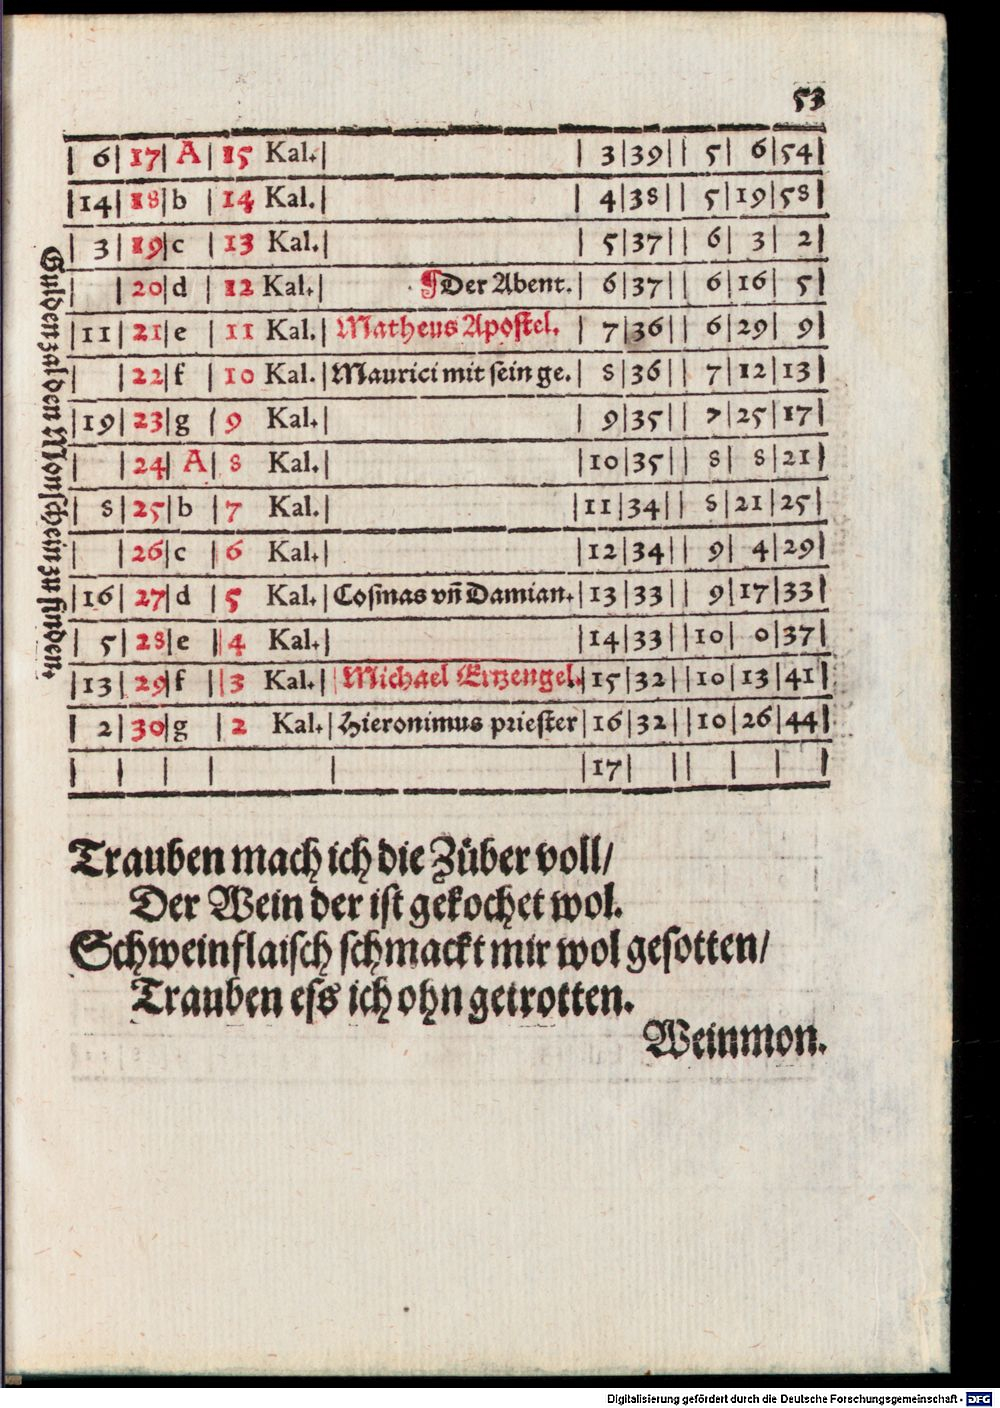 53
6 17 A 15 Kal. 3 39 5 6 54
14 18 b 14 Kal. 4 38 5 19 58
3 19 c 13 Kal. 5 37 6 3 2
20 d 12 Kal. ¶Der Abent. 6 37 6 16 5
11 21 e 11 Kal. Matheus Apostel. 7 36 6 29 9
22 f 10 Kal. Maurici mit sein ge. 8 36 7 12 13
19 23 g 9 Kal. 9 35 7 25 17
24 A 8 Kal. 10 35 8 8 21
8 25 b 7 Kal. 11 34 8 21 25
26 c 6 Kal. 12 34 9 4 29
16 27 d 5 Kal. Cosmas vñ Damian. 13 33 9 17 33
5 28 e 4 Kal. 14 33 10 0 37
13 29 f 3 Kal. Michael Ertzengel. 15 32 10 13 41
2 30 g 2 Kal. Hieronimus priester 16 32 10 26 44
17
Gulden zal den Monschein zu finden.
Trauben mach ich die Züber voll/
Der Wein der ist gekochet wol.
Schweinflaisch schmackt mir wol gesotten/
Trauben ess ich ohn getrotten.
Weinmon.
Digitalisierung gefördert durch die Deutsche Forschungsgemeinschaft - DFG